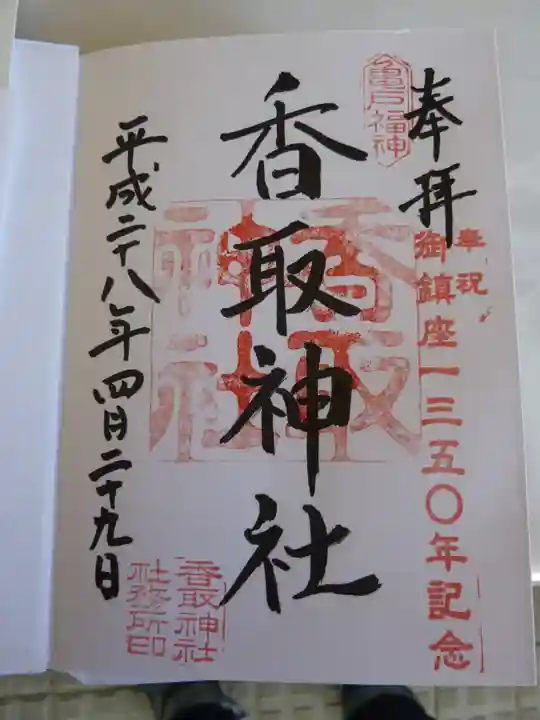 奉拝
亀戸福神
奉祝
御鎮座一三五〇年記念
香取神社
香取神社
平成二十八年四月二十九日
香取神社
社務所印